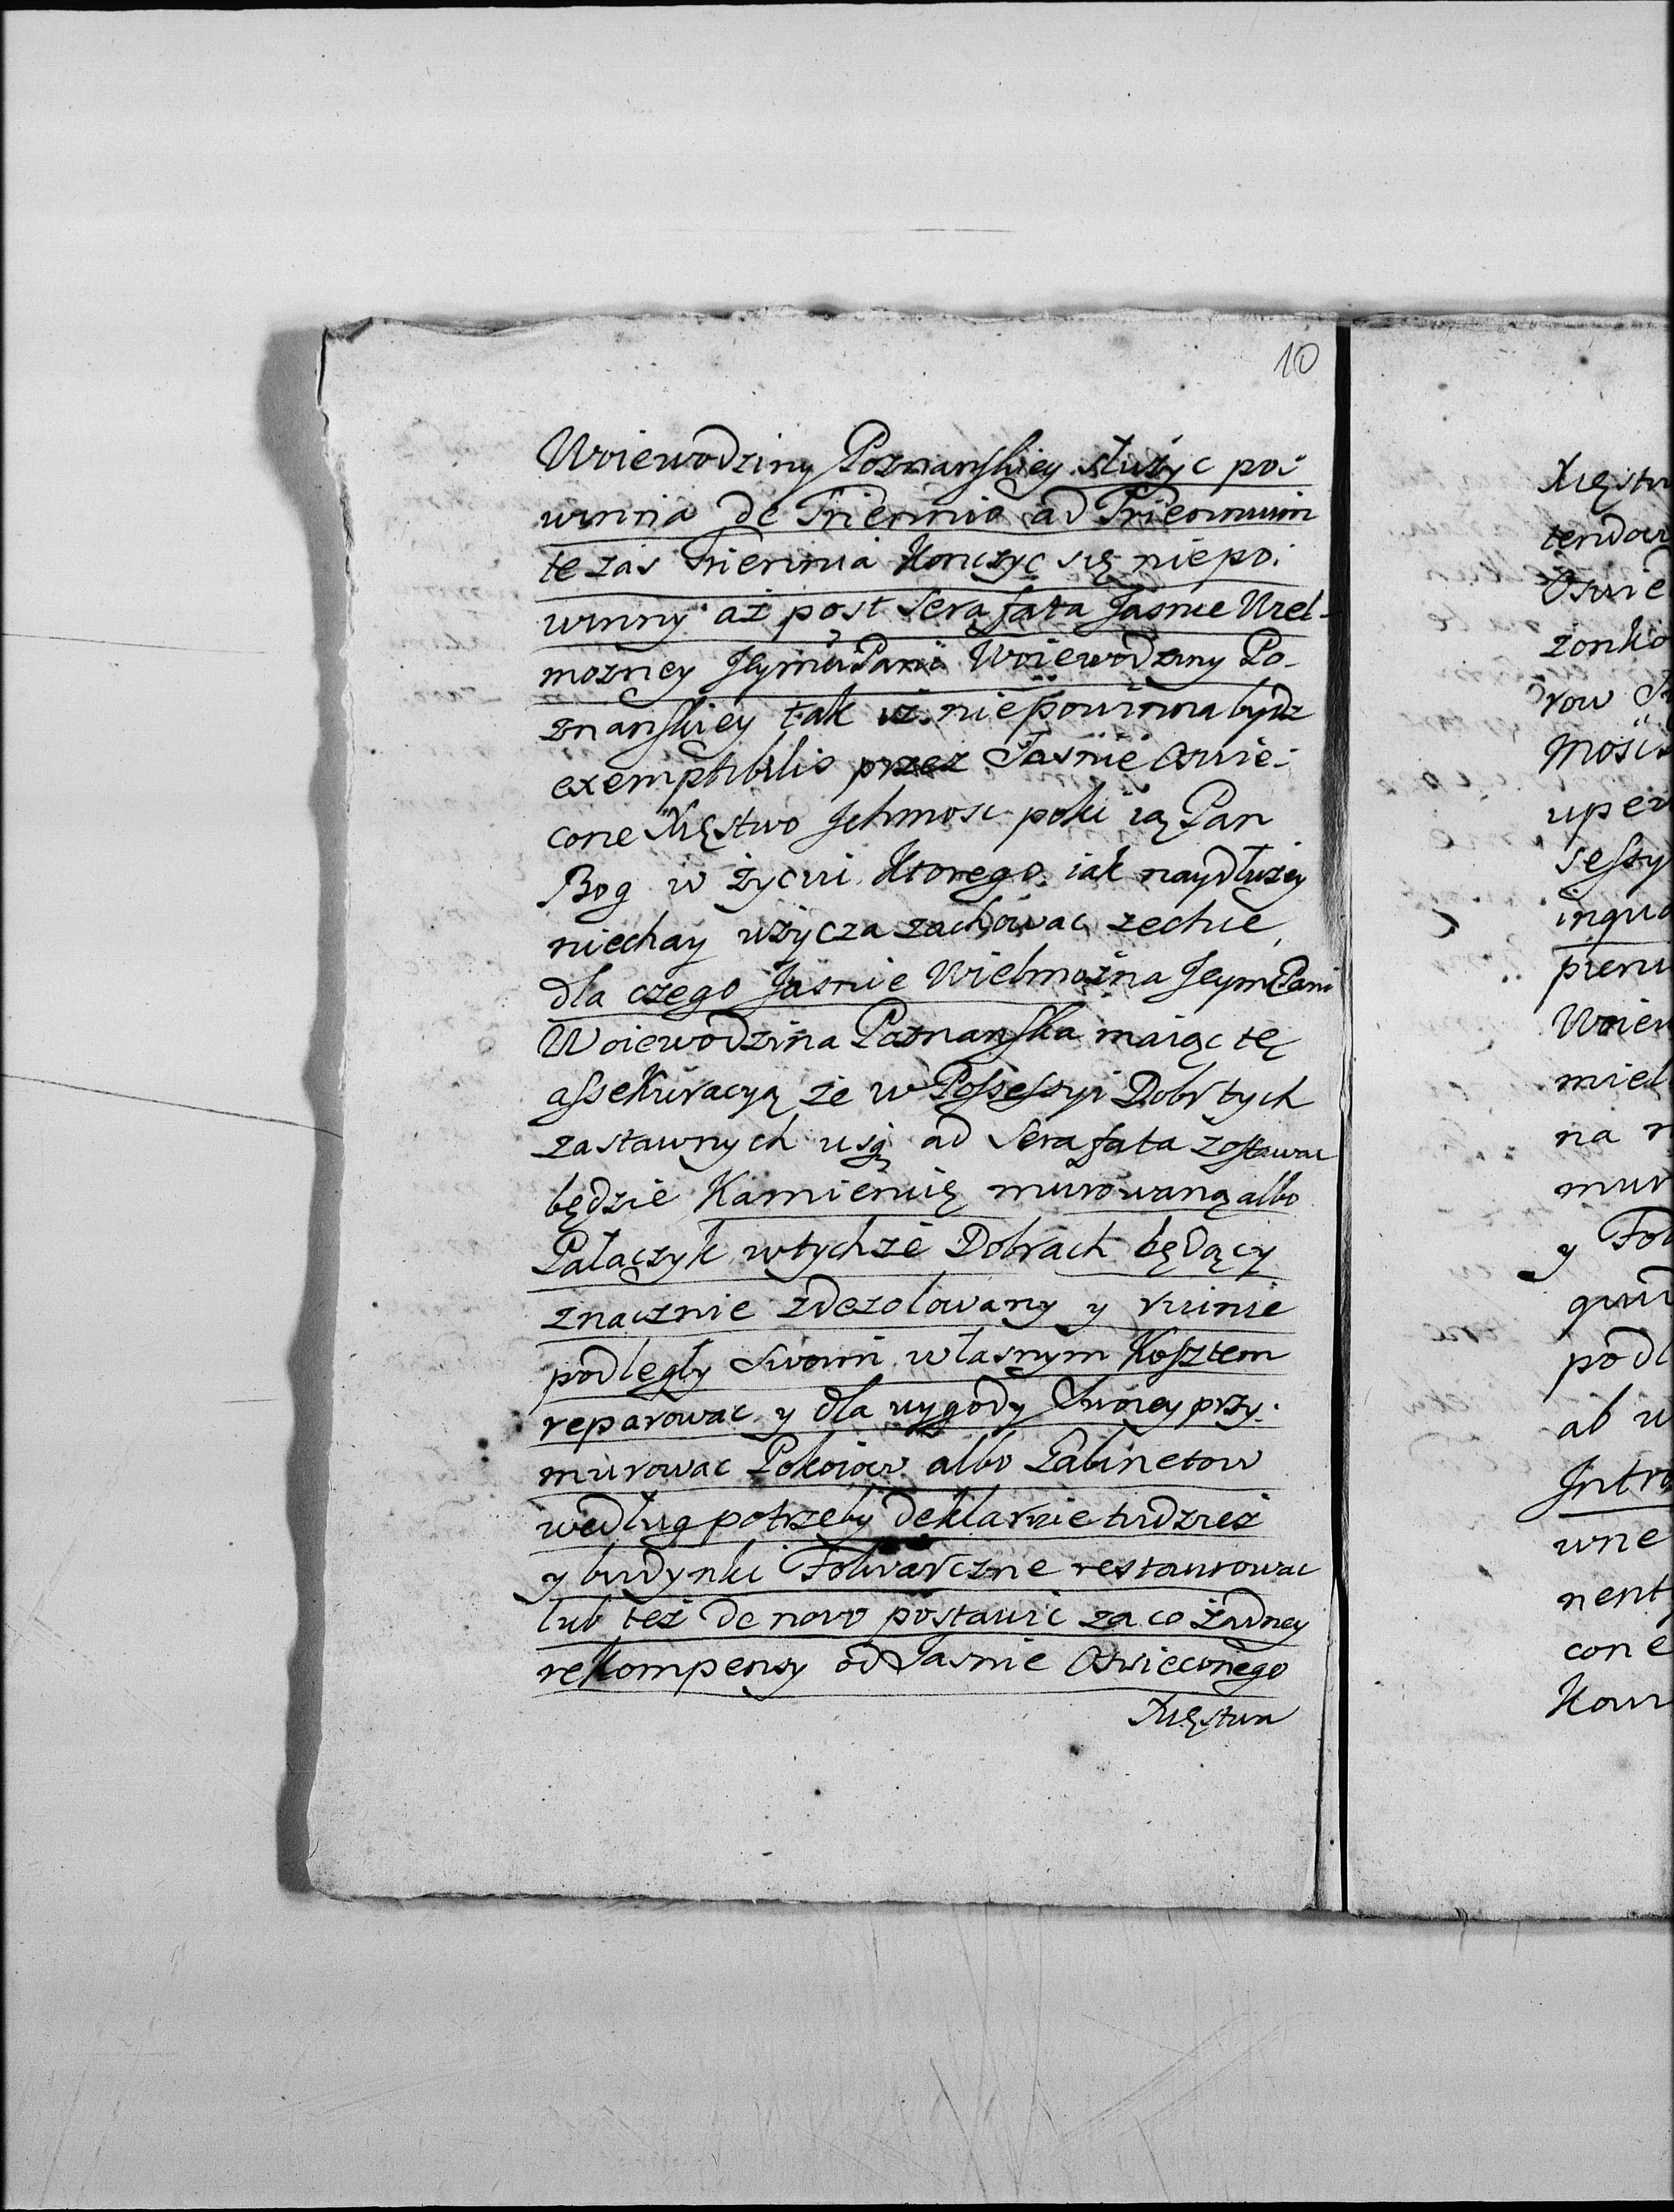 10
Woiewodziny Poznanskiey służyc po-
winna de Triennio ad Triennium
te zas Triennia Konczyc się niepo-
winny aż post sera fata Jasnie Wiel-
możney Jeymci Pani Woiewodziny Po-
znanskiey tak iż niepowinna bydz
exemptibilis przez Jasnie Oswie-
cone Xięstwo Ichmosc poki ią Pan
Bog w życiu ktorego iak naydłużey
niechay użycza zachowac zechce,
dla czego Jasnie Wielmożna Jeym Pani
Woiewodzina Poznanska maiąc tę
assekuracyą że w Possessyi Dobr tych
zastawnych usq ad sera fata zostawac
będzie Kamienicę murowaną albo
Pałaczyk wtychże Dobrach będący
znacznie zdezolowany y ruinie
podległy Swoim własnym Kosztem
reparowac y dla wygody Swoiey przy-
murowac Pokoiow albo Gabinetow
według potrzeby deklaruie tudzież
y budynki Folwarczne restaurowac
lub też de novo postawic za co żadney
rekompensy od Jasnie Oswieconego
Xięstwa
Xięstw
tendow
Oswie
zonko
row
Mosis
uper
sessy
inqua
pierw
Woiew
miel
na
mur
y Fol
podl
ab
Intro
wne
nent
cone
Kow